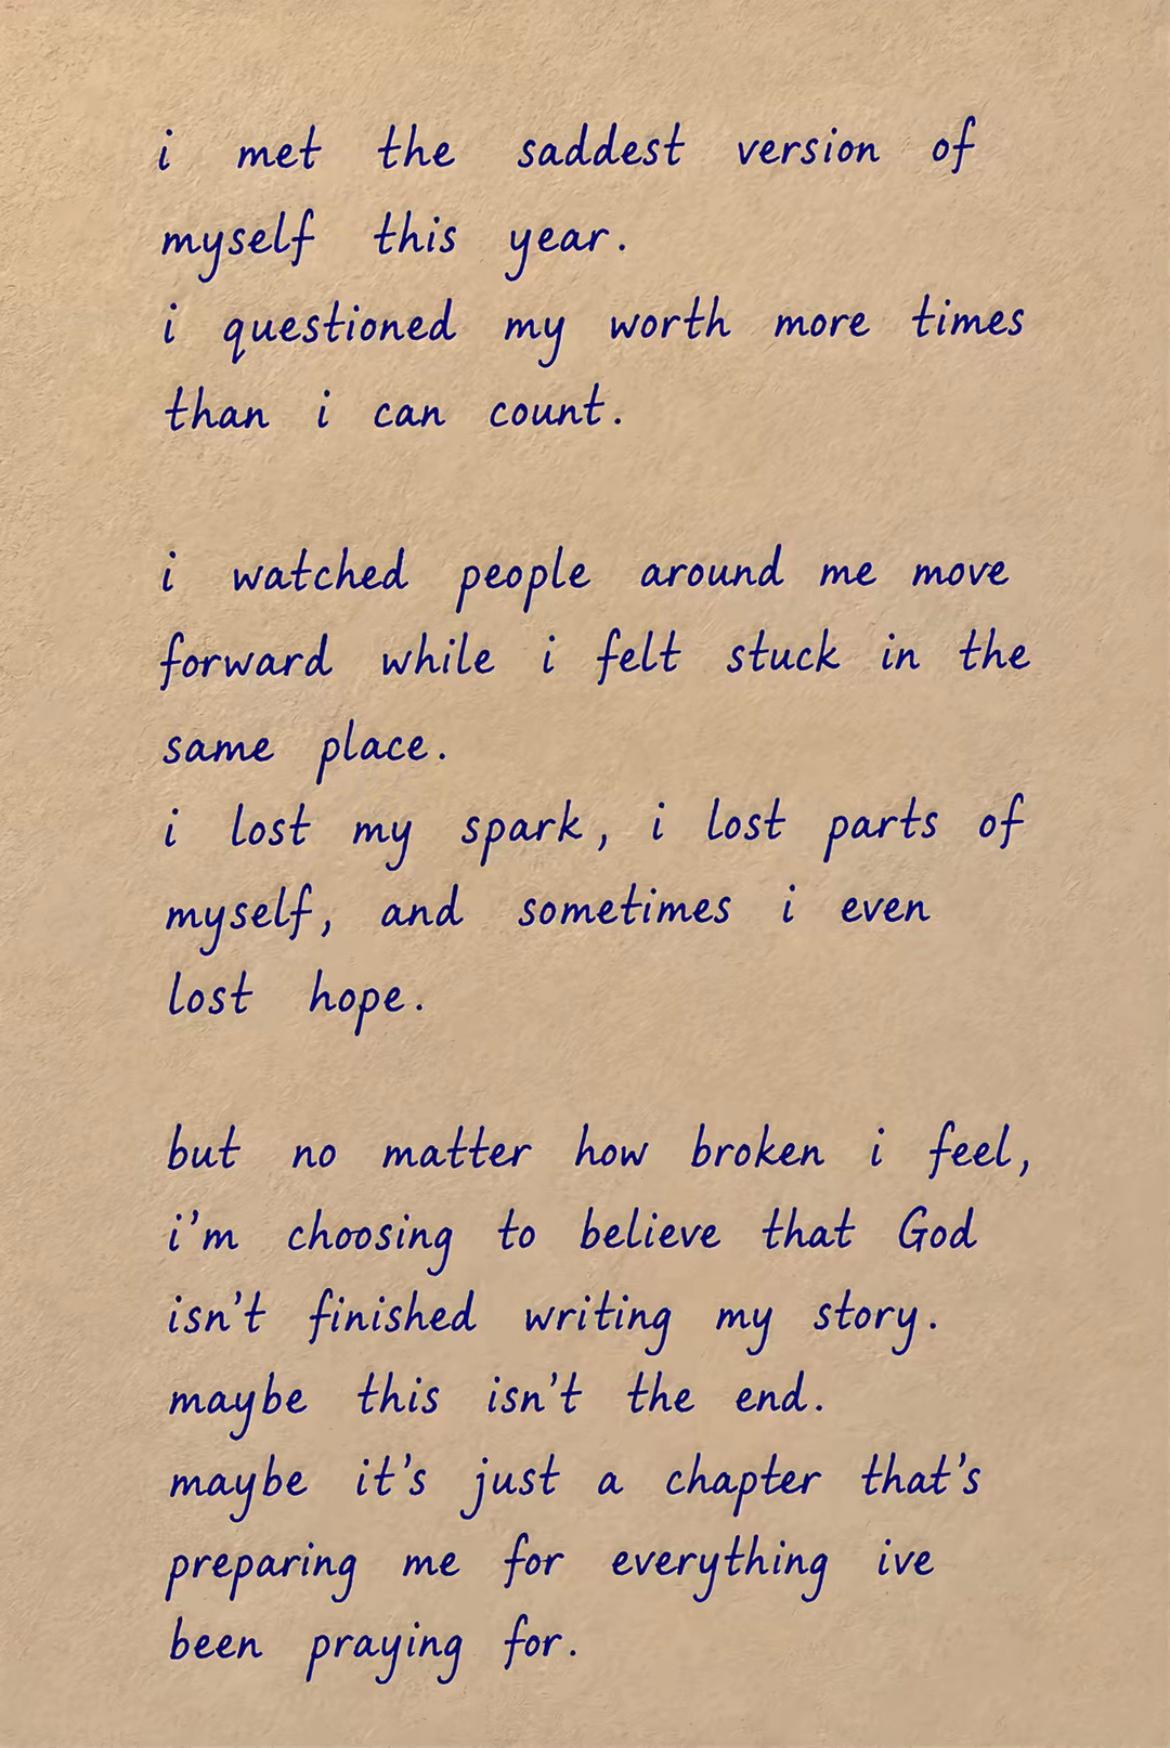 i met the saddest version of
myself this year.
i questioned my worth more times
than i can count.
i watched people around me move
forward while i felt stuck in the
same place.
i lost my spark, i lost parts of
myself, and sometimes i even
lost hope.
but no matter how broken i feel,
i'm choosing to believe that God
isn't finished writing my story.
maybe this isn't the end.
maybe it's just a chapter that's
preparing me for everything ive
been praying for.